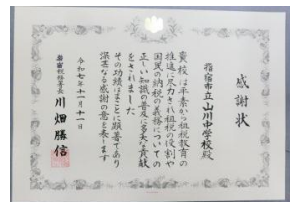 感謝状
指宿市立山川中学校殿
貴校は平素から租税教育の
推進に尽力され租税の役割や
国民の納税の義務についての
正しい知識の普及に多大な貢献
をされました
その功績はまことに顕著であり
深甚なる感謝の意を表します
令和七年十一月十一日
指宿税務署長 川畑勝信